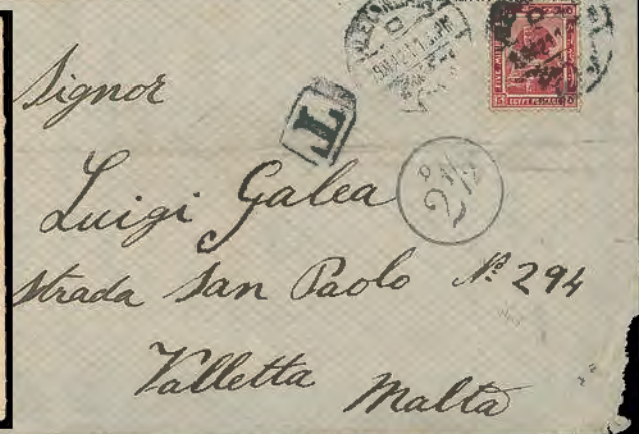 T
FIVE MILL
EGYPT POSTAGE
Signor
Luigi Galea
2½
strada San Paolo Nº 294
Valletta
Malta